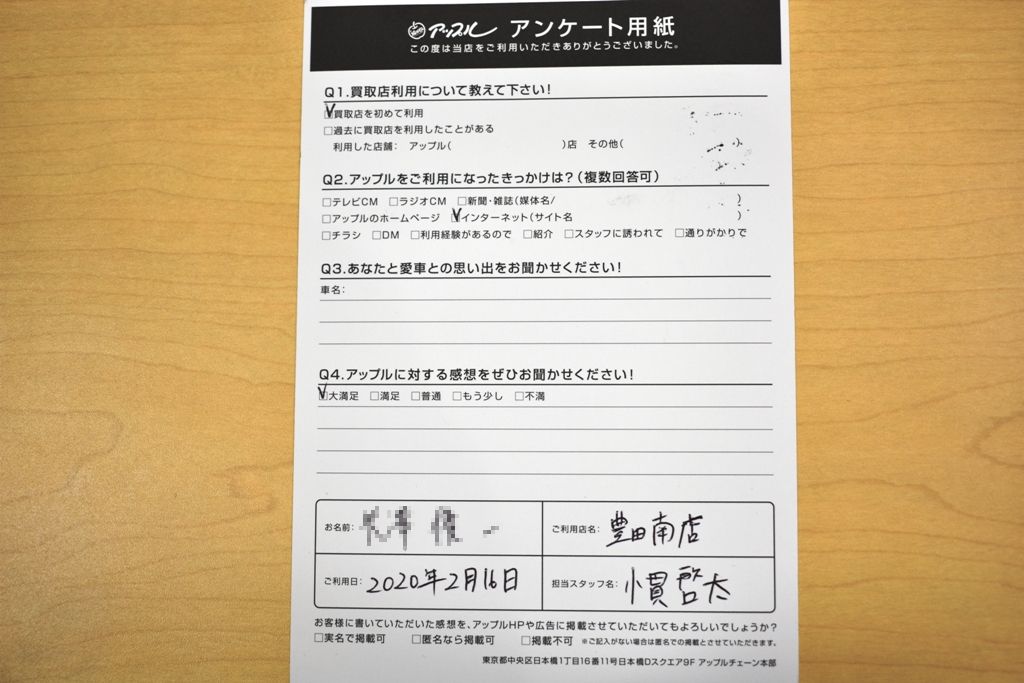 アップル アンケート用紙
この度は当店をご利用いただきありがとうございました。
Q1.買取店利用について教えて下さい!
☑買取店を初めて利用
□過去に買取店を利用したことがある
利用した店舗: アップル( )店 その他(
Q2.アップルをご利用になったきっかけは?(複数回答可)
□テレビCM □ラジオCM □新聞・雑誌(媒体名/ )
□アップルのホームページ ☑インターネット(サイト名 )
□チラシ □DM □利用経験があるので □紹介 □スタッフに誘われて □通りがかりで
Q3.あなたと愛車との思い出をお聞かせください!
車名:
Q4.アップルに対する感想をぜひお聞かせください!
☑大満足 □満足 □普通 □もう少し □不満
お名前:
ご利用店名: 豊田南店
ご利用日: 2020年2月16日
担当スタッフ名: 小貫啓太
お客様に書いていただいた感想を、アップルHPや広告に掲載させていただいてもよろしいでしょうか?
□実名で掲載可 □匿名なら掲載可 □掲載不可 ※ご記入がない場合は匿名での掲載とさせていただきます。
東京都中央区日本橋1丁目16番11号日本橋Dスクエア9F アップルチェーン本部